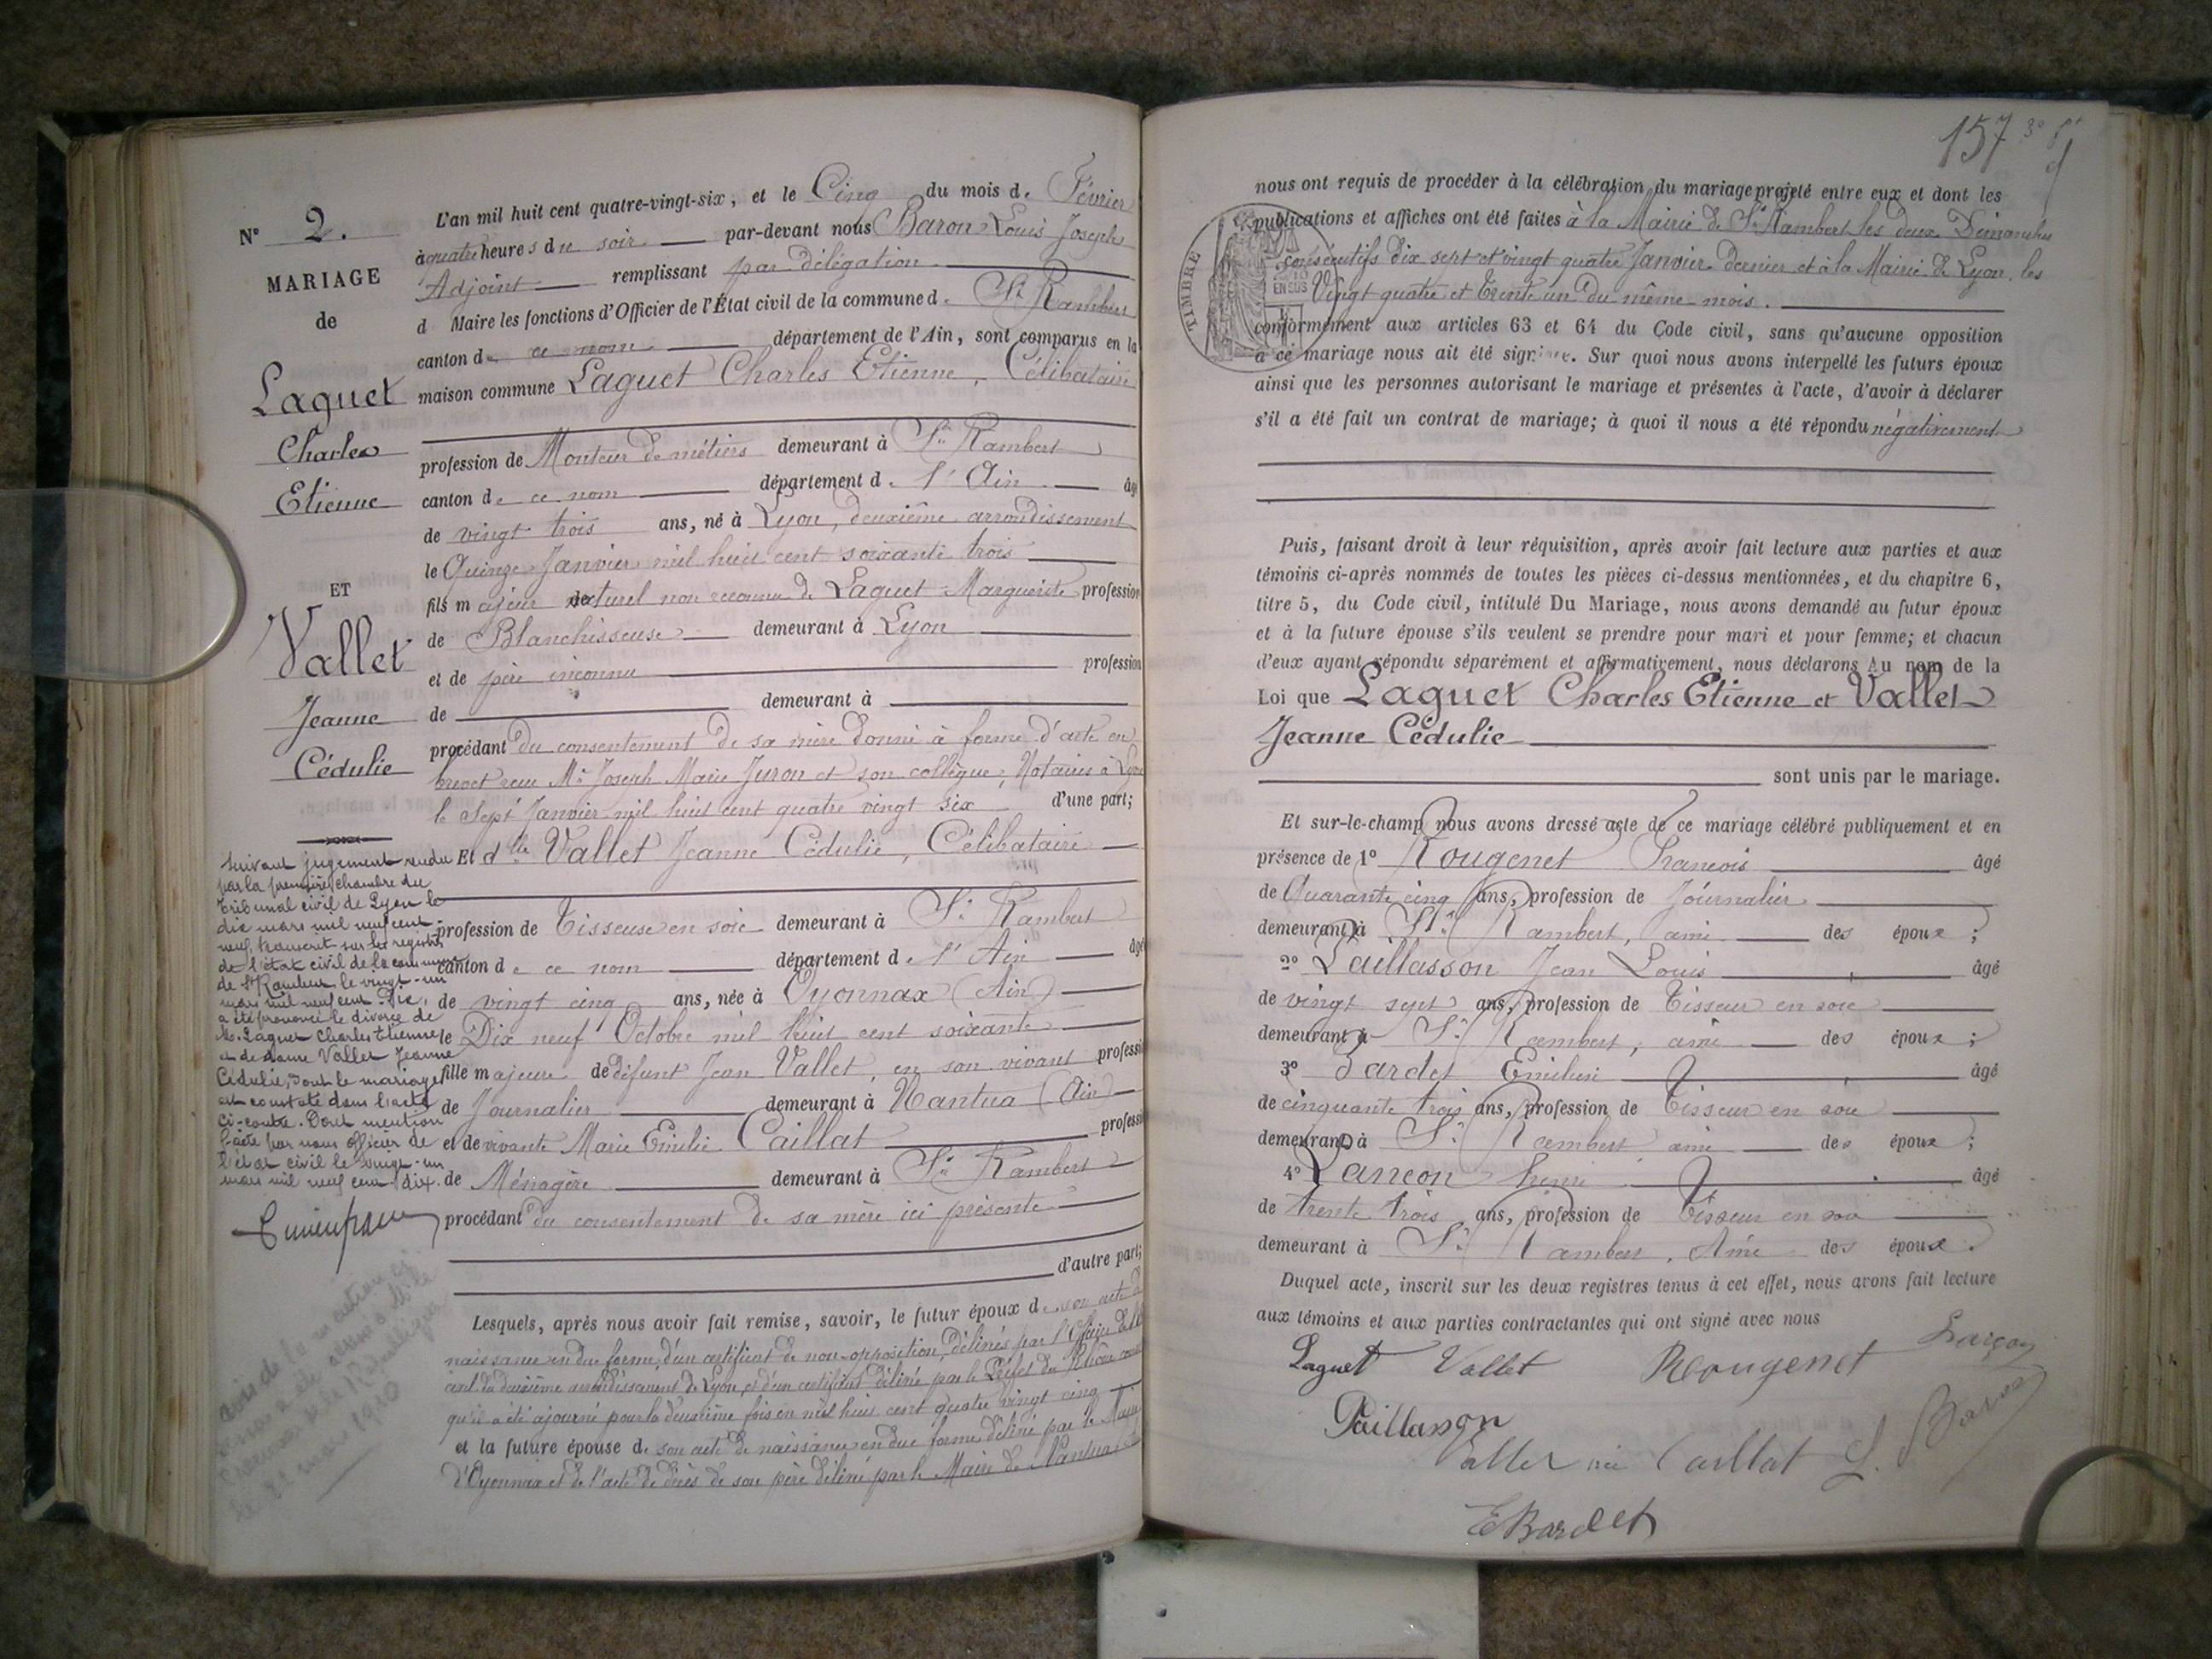 N° 2.
MARIAGE
de
Laguet
Charles
Etienne
ET
Vallet
Jeanne
Cédulie
Suivant jugement rendu
par la première chambre du
Tribunal civil de Lyon le
dix mars mil neuf cent
neuf, transcrit sur les registres
de l'état civil de la commune
de St Rambert le vingt-un
mars mil neuf cent dix,
a été prononcé le divorce de
M. Laguet Charles Etienne
et de dame Vallet Jeanne
Cédulie, dont le mariage
est constaté dans l'acte
ci-contre. Dont mention
faite par nous officier de
l'état civil le vingt-un
mars mil neuf cent dix.
L'an mil huit cent quatre-vingt-six, et le Cinq du mois de Février
à quatre heures du soir par-devant nous Baron Louis Joseph
Adjoint remplissant par délégation
d Maire les fonctions d'Officier de l'État civil de la commune de St Rambert
canton de ce nom département de l'Ain, sont comparus en la
maison commune Laguet Charles Etienne, Célibataire
profession de Monteur de métiers demeurant à St Rambert
canton de ce nom département de l'Ain âgé
de vingt trois ans, né à Lyon, deuxième arrondissement
le Quinze Janvier mil huit cent soixante trois
fils majeur naturel non reconnu de Laguet Marguerite profession
de Blanchisseuse demeurant à Lyon
et de père inconnu profession
de demeurant à
procédant du consentement de sa mère donné à forme d'acte en
brevet reçu Me Joseph Marie Juron et son collègue, Notaires à Lyon
le sept Janvier mil huit cent quatre vingt six d'une part;
Et dlle Vallet Jeanne Cédulie, Célibataire
profession de Tisseuse en soie demeurant à St Rambert
canton de ce nom département de l'Ain âgé
de vingt cinq ans, née à Oyonnax (Ain)
le Dix neuf Octobre mil huit cent soixante
fille majeure de défunt Jean Vallet, en son vivant professi
de Journalier demeurant à Nantua (Ain)
et de vivante Marie Emilie Caillat professi
de Ménagère demeurant à St Rambert
procédant du consentement de sa mère ici présente
d'autre part;
Lesquels, après nous avoir fait remise, savoir, le futur époux de son acte de
naissance en due forme, d'un certificat de non-opposition, délivrés par l'Officier de l'état
civil du deuxième arrondissement de Lyon, et d'un certificat délivré par le Préfet du Rhône
qu'il a été ajourné pour la deuxième fois en mil huit cent quatre vingt cinq
et la future épouse de son acte de naissance en due forme délivré par le Maire
d'Oyonnax et de l'acte de décès de son père délivré par le Maire de Nantua
157
TIMBRE
EN SUS
nous ont requis de procéder à la célébration du mariage projeté entre eux et dont les
publications et affiches ont été faites à la Mairie de St Rambert les deux Dimanches
consécutifs dix sept et vingt quatre Janvier dernier et à la Mairie de Lyon les
Vingt quatre et trente un du même mois.
conformément aux articles 63 et 64 du Code civil, sans qu'aucune opposition
à ce mariage nous ait été signifiée. Sur quoi nous avons interpellé les futurs époux
ainsi que les personnes autorisant le mariage et présentes à l'acte, d'avoir à déclarer
s'il a été fait un contrat de mariage; à quoi il nous a été répondu négativement
Puis, faisant droit à leur réquisition, après avoir fait lecture aux parties et aux
témoins ci-après nommés de toutes les pièces ci-dessus mentionnées, et du chapitre 6,
titre 5, du Code civil, intitulé Du Mariage, nous avons demandé au futur époux
et à la future épouse s'ils veulent se prendre pour mari et pour femme; et chacun
d'eux ayant répondu séparément et affirmativement, nous déclarons Au nom de la
Loi que Laguet Charles Etienne et Vallet
Jeanne Cédulie
sont unis par le mariage.
Et sur-le-champ nous avons dressé acte de ce mariage célébré publiquement et en
présence de 1° Rougenet François âgé
de Quarante cinq ans, profession de Journalier
demeurant à St Rambert, ami des époux;
2° Paillasson Jean Louis âgé
de vingt sept ans, profession de Tisseur en soie
demeurant à St Rambert, ami des époux;
3° Bardet Emilien âgé
de cinquante trois ans, profession de Tisseur en soie
demeurant à St Rambert ami des époux;
4° Lançon Henri âgé
de trente trois ans, profession de Tisseur en soie
demeurant à St Rambert, Ami des époux.
Duquel acte, inscrit sur les deux registres tenus à cet effet, nous avons fait lecture
aux témoins et aux parties contractantes qui ont signé avec nous
Laguet Vallet Rougenet Lançon
Paillasson
Vallet née Caillat L. Baron
E Bardet